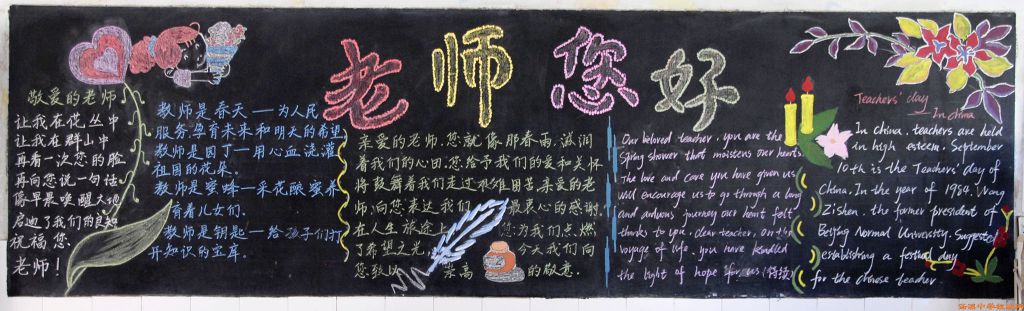 老师您好
敬爱的老师
让我在花丛中
让我在群山中
再看一次您的脸
再向您说一句话
像早晨唤醒大地
启迪了我们的良知
祝福您:
老师!
教师是春天一为人民
服务孕育未来和明天的希望
教师是园丁一用心血浇灌
祖国的花朵.
教师是蜜蜂一采花酿蜜养
育着儿女们.
教师是钥匙一给孩子们打
开知识的宝库.
亲爱的老师.您就像那春雨.滋润
着我们的心田.您给予我们的爱和关怀
将鼓舞着我们走过艰难困苦.亲爱的老
师.向您表达我们最衷心的感谢.
在人生旅途上您.为我们点燃
了希望之光今天我们向
您致以崇高的敬意.
Our beloved teacher, you are the
Spring shower that moistens our hearts.
The love and care you have given us
will encourage us to go through a long
and arduous journey our heart felt
thanks to you. dear teacher, on the
voyage of life. you have kindled
the light of hope for us (待续)
Teachers' day
In china
In china, teachers are held
in high esteem. September
10th is the Teachers' day of
China. In the year of 1984. Wang
Zishen. the former president of
Beijing Normal University. Suggested
establishing a festival day
for the chinese teacher